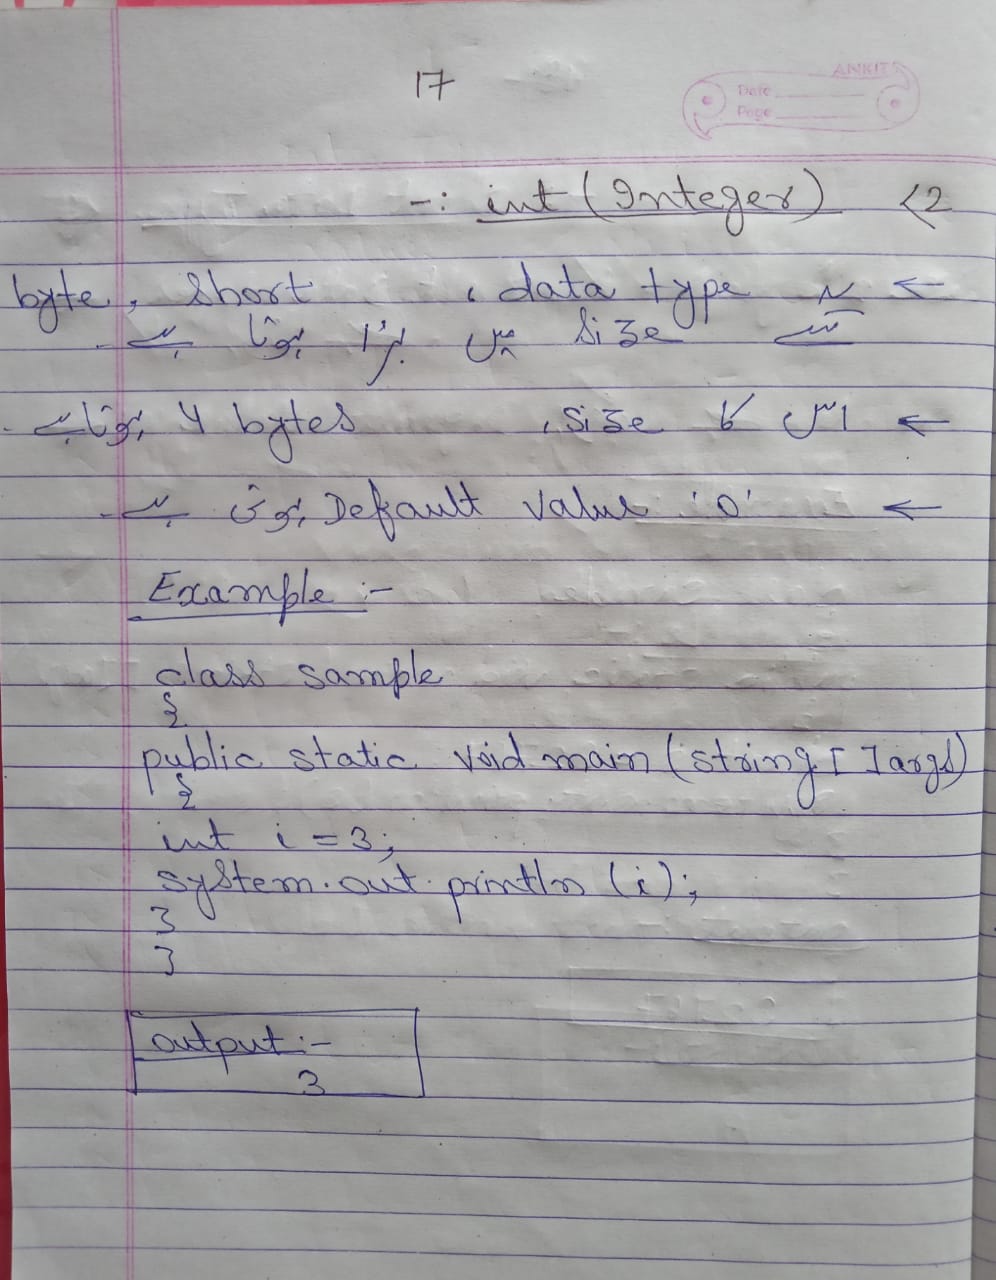 17
ANKIT
Date
Page
2> int (Integer) :-
← یہ data type، byte, short
سے size میں بڑا ہوتا ہے۔
← اس کا size، 4 bytes ہوتا ہے۔
← Default value '0' ہوتی ہے۔
Example :-
class sample
{
public static void main (string [ ] args)
{
int i = 3;
system.out.println (i);
}
}
output :-
3